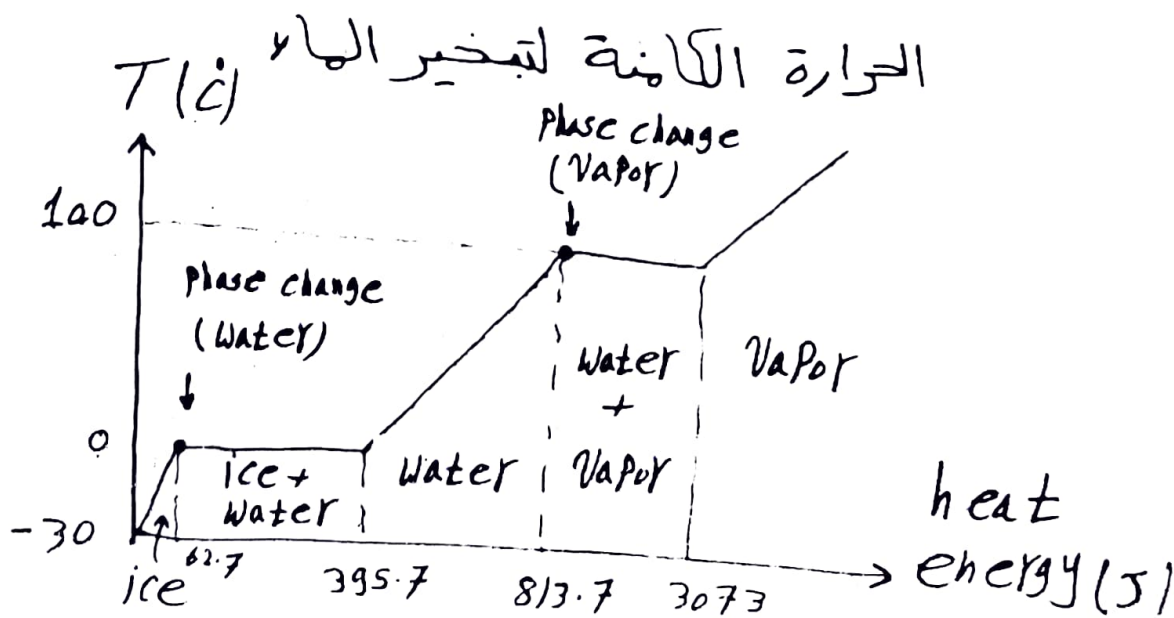 الحرارة الكامنة لتبخير الماء
T(c̊)
Phase change
(Vapor)
100
Phase change
(Water)
Water
+
Vapor
Vapor
0
ice +
water
Water
-30
ice
62.7
395.7
813.7
3073
heat
energy (J)